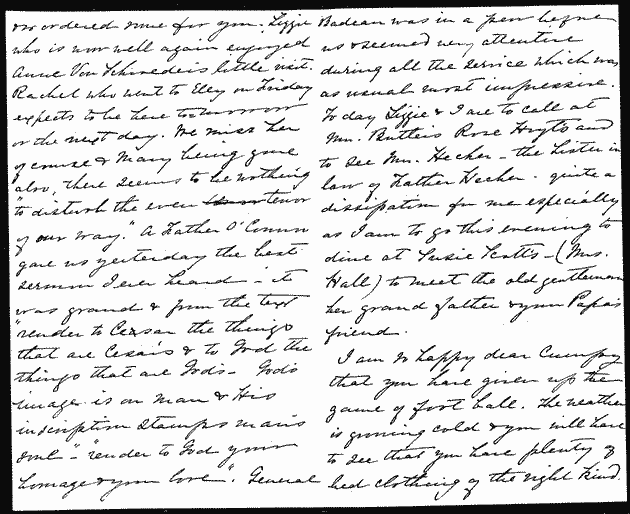 or ordered some for you. Lizzie
who is now well again enjoyed
Anne Von Schraeders little visit.
Rachel who went to Elzey on Friday
expects to be here tomorrow
or the next day. We miss her
of course & Mary being gone
also, there seems to be nothing
"to disturb the even tenor
of our way." A Father O'Connor
gave us yesterday the best
sermon I ever heard - it
was grand & from the text
"render to Cesar the things
that are Cesar's & to God the
things that are God's - God's
image is on man & His
inscription stamps man's
soul - "render to God your
homage & your love". General
Badeau was in a pew before
us & seemed very attentive
during all the service which was
as usual most impressive.
To day Lizzie & I are to call at
Mrs. Butler's Rose Hoyt's and
to see Mrs. Hecker - the sister in
law of Father Hecker. quite a
dissipation for me especially
as I am to go this evening to
dine at Susie Scott's - (Mrs.
Hall) to meet the old gentleman
her grand father & your Papa's
friend.
I am so happy dear Cumpy
that you have given up the
game of foot ball. The weather
is growing cold & you will have
to see that you have plenty of
bed clothing of the right kind.